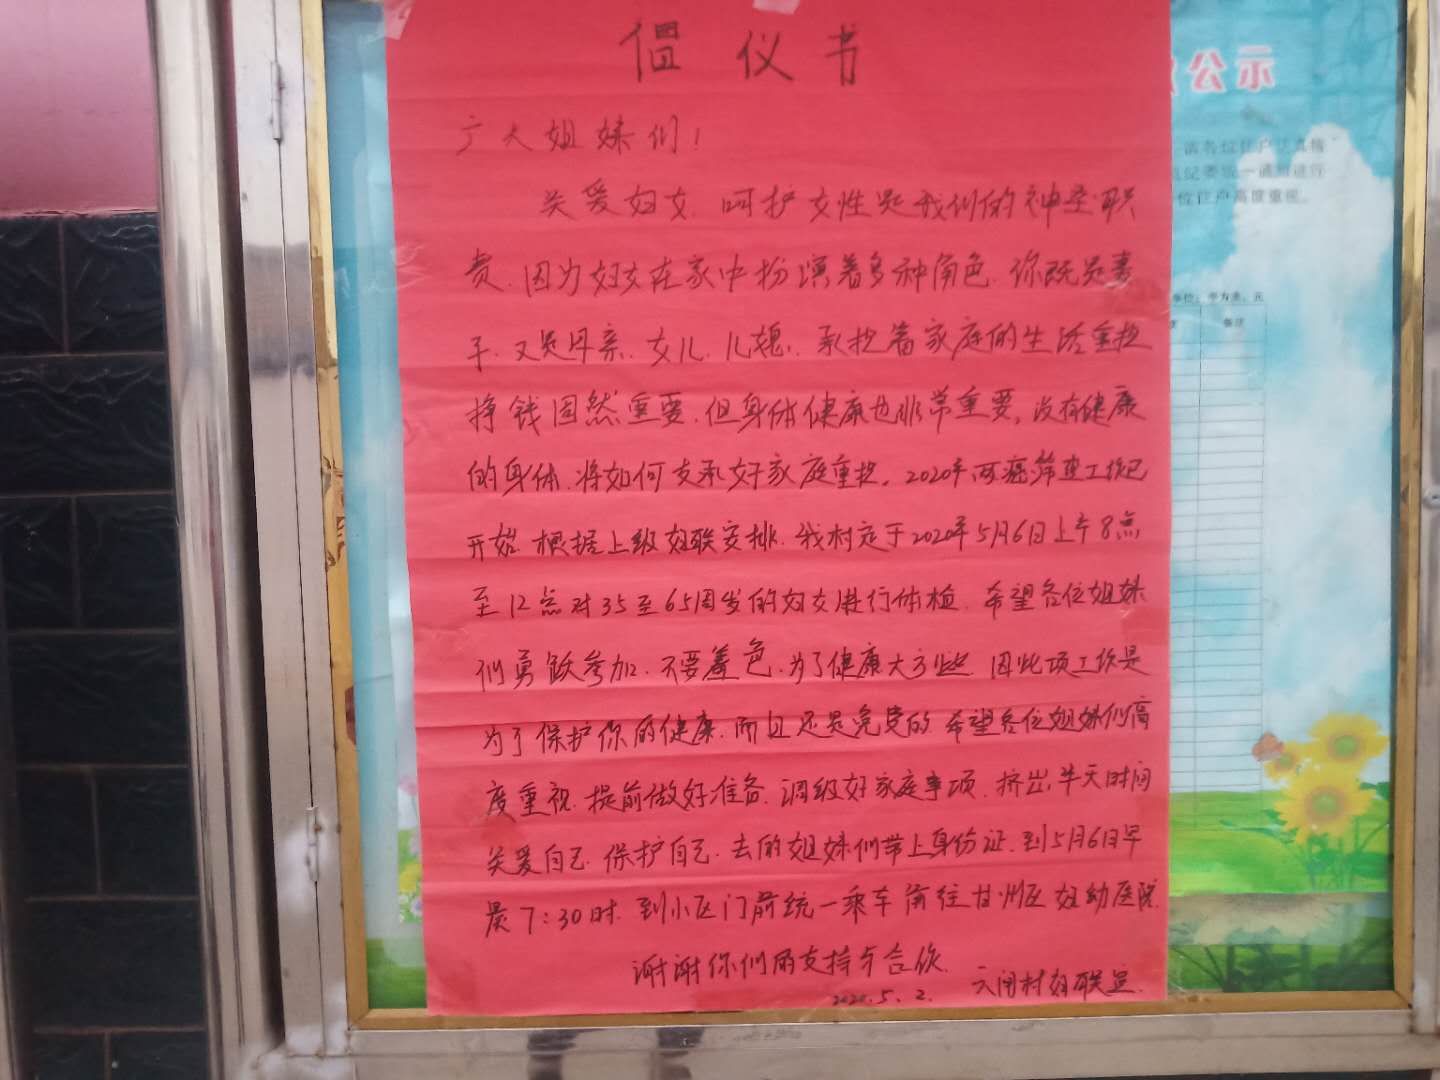 倡仪书
公示
广大姐妹们!
关爱妇女.呵护女性是我们的神圣职
责.因为妇女在家中扮演着多种角色.你既是妻
子.又是母亲.女儿.儿媳.承担着家庭的生活重担
挣钱固然重要.但身体健康也非常重要。没有健康
的身体.将如何支承好家庭重担。2020年两癌筛查工作已
开始.根据上级妇联安排.我村定于2020年5月6日上午8点
至12点对35至65周岁的妇女进行体检.希望各位姐妹
们勇跃参加.不要羞色.为了健康大方些.因此项工作是
为了保护你的健康.而且还是免费的.希望各位姐妹们高
度重视.提前做好准备.调级好家庭事项.挤出半天时间
关爱自己.保护自己.去的姐妹们带上身份证.到5月6日早
晨7:30时.到小区门前统一乘车前往甘州区妇幼医院.
谢谢你们的支持与合作.
2020.5.2.
村妇联宣.
位住户高度重视。
单位:平方米、元
备注